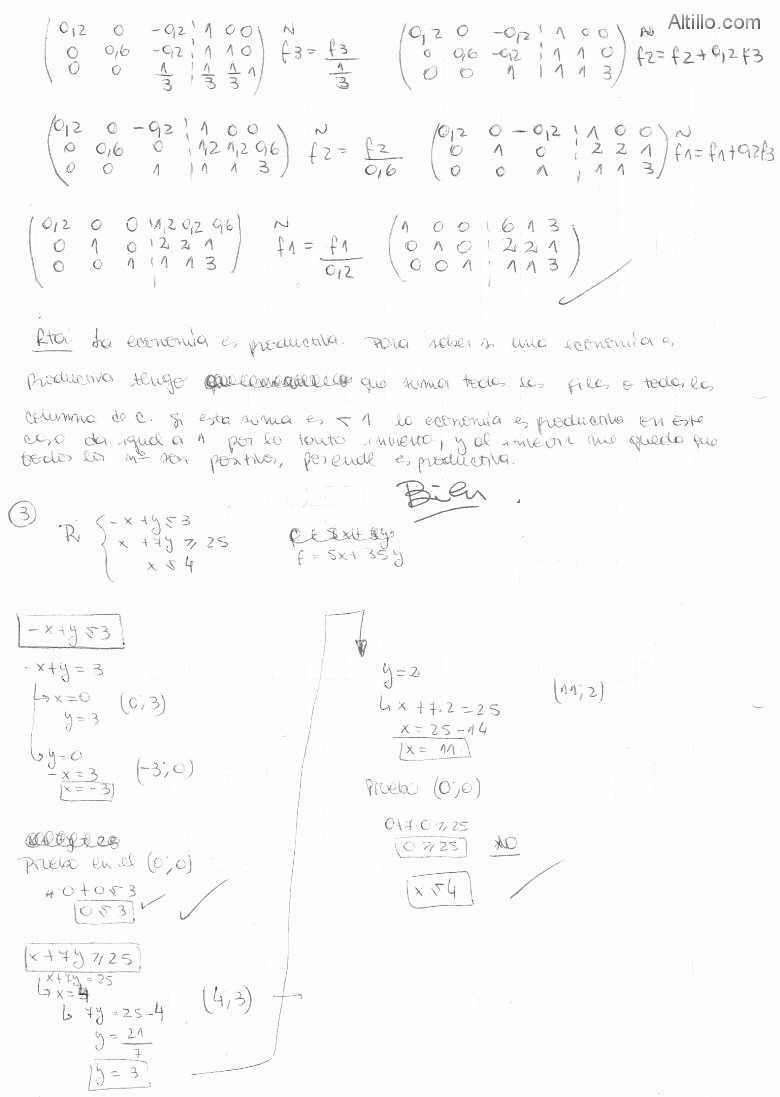 Altillo.com
0,2 0 -0,2 | 1 0 0
0 0,6 -0,2 | 1 1 0
0 0 1/3 | 1/3 1/3 1
N
f3 = f3 / 1/3
0,2 0 -0,2 | 1 0 0
0 0,6 -0,2 | 1 1 0
0 0 1 | 1 1 3
N
f2 = f2 + 0,2 f3
0,2 0 -0,2 | 1 0 0
0 0,6 0 | 1,2 1,2 0,6
0 0 1 | 1 1 3
N
f2 = f2 / 0,6
0,2 0 -0,2 | 1 0 0
0 1 0 | 2 2 1
0 0 1 | 1 1 3
N
f1 = f1 + 0,2 f3
0,2 0 0 | 1,2 0,2 0,6
0 1 0 | 2 2 1
0 0 1 | 1 1 3
N
f1 = f1 / 0,2
1 0 0 | 6 1 3
0 1 0 | 2 2 1
0 0 1 | 1 1 3
Rta: La economía es productiva. Para saber si una economía es
productiva tengo que sumar todas las filas o todas las
columna de C. Si esta suma es < 1 la economía es productiva en este
caso da igual a 1 por lo tanto invierto, y al invertir me queda que
todos los nº son positivos, por ende es productiva.
Bien.
3
R
-x + y ≤ 3
x + 7y ≥ 25
x ≤ 4
f = 5x + 35y
-x + y ≤ 3
-x + y = 3
x = 0
y = 3
(0; 3)
y = 0
-x = 3
x = -3
(-3; 0)
Prueba en el (0; 0)
0 + 0 ≤ 3
0 ≤ 3
x + 7y ≥ 25
x + 7y = 25
x = 4
7y = 25 - 4
y = 21/7
y = 3
(4, 3)
y = 2
x + 7.2 = 25
x = 25 - 14
x = 11
(11; 2)
Prueba (0; 0)
0 + 7.0 ≥ 25
0 ≥ 25 NO
x ≤ 4